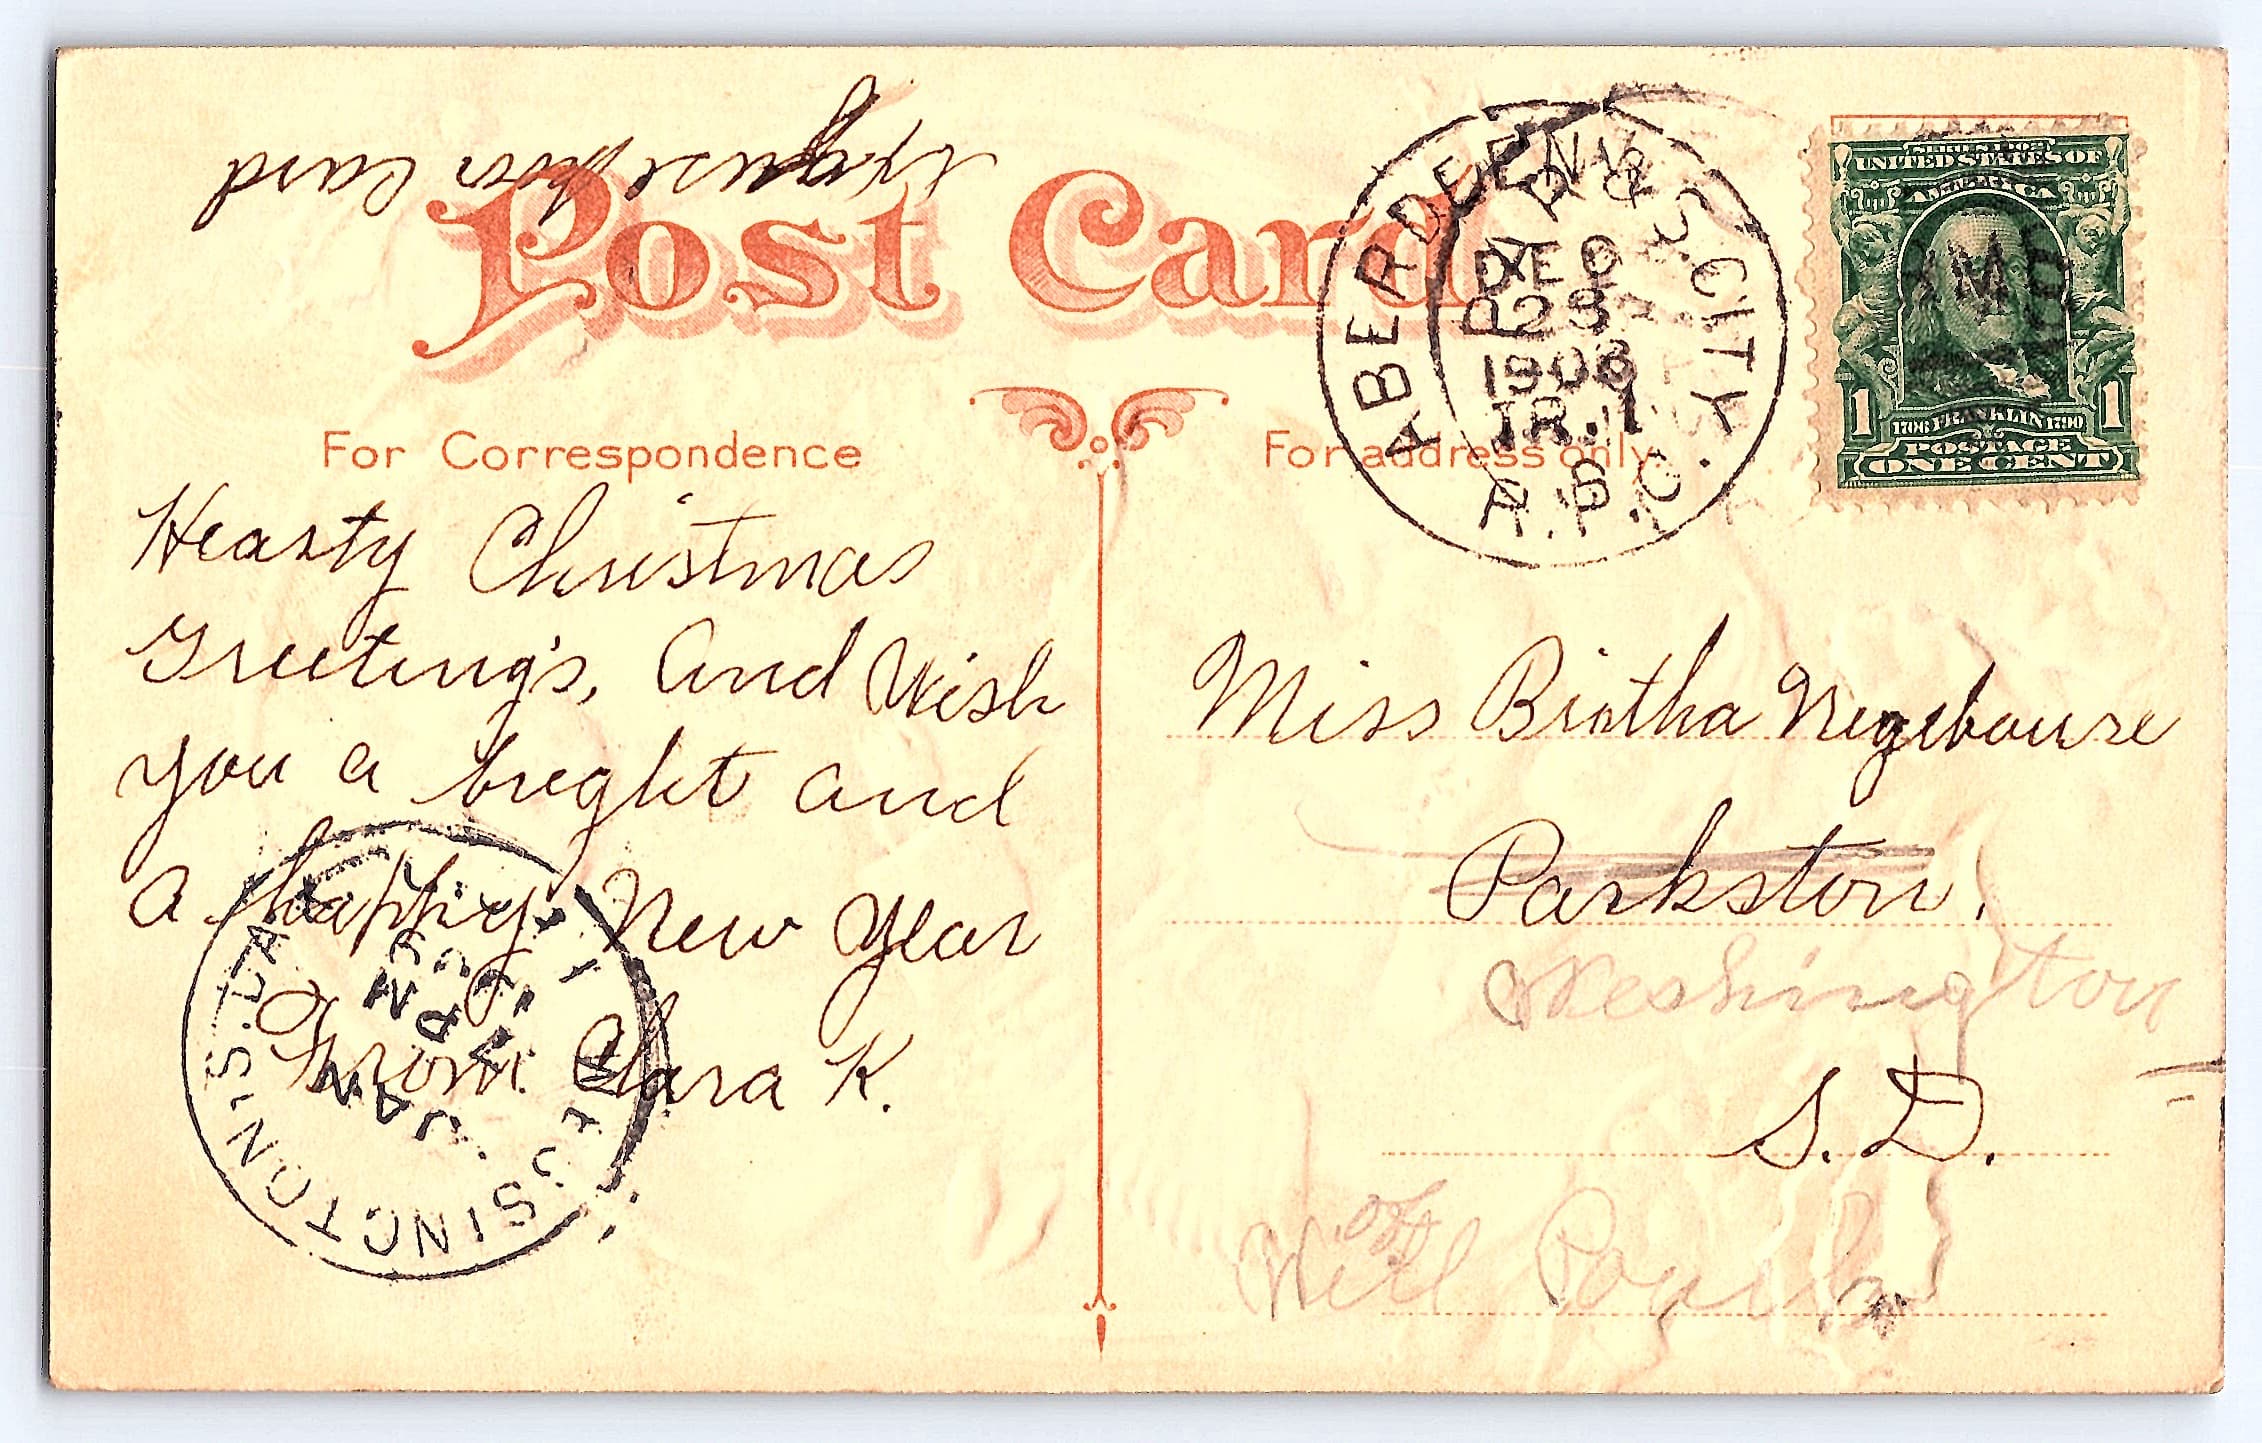 Excuse poor Card
Post Card
For Correspondence
For address only.
ABERDEEN & S. CITY.
DEC
23
1908
TR. 1
R.P.O.
SERIES 1902
UNITED STATES OF
AMERICA
1706 FRANKLIN 1790
POSTAGE
1 ONE CENT 1
Hearty Christmas
Greeting's, and Wish
you a bright and
a happy New Year
From Clara K.
Miss Birtha
Parkston,
Weshington
S.D.
% Will
WESSINGTON S.DAK.
JAN